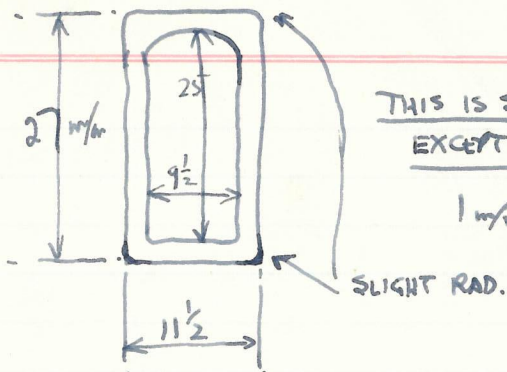 27 m/m
25
9 1/2
11 1/2
THIS IS
EXCEPT
1 m/
SLIGHT RAD.